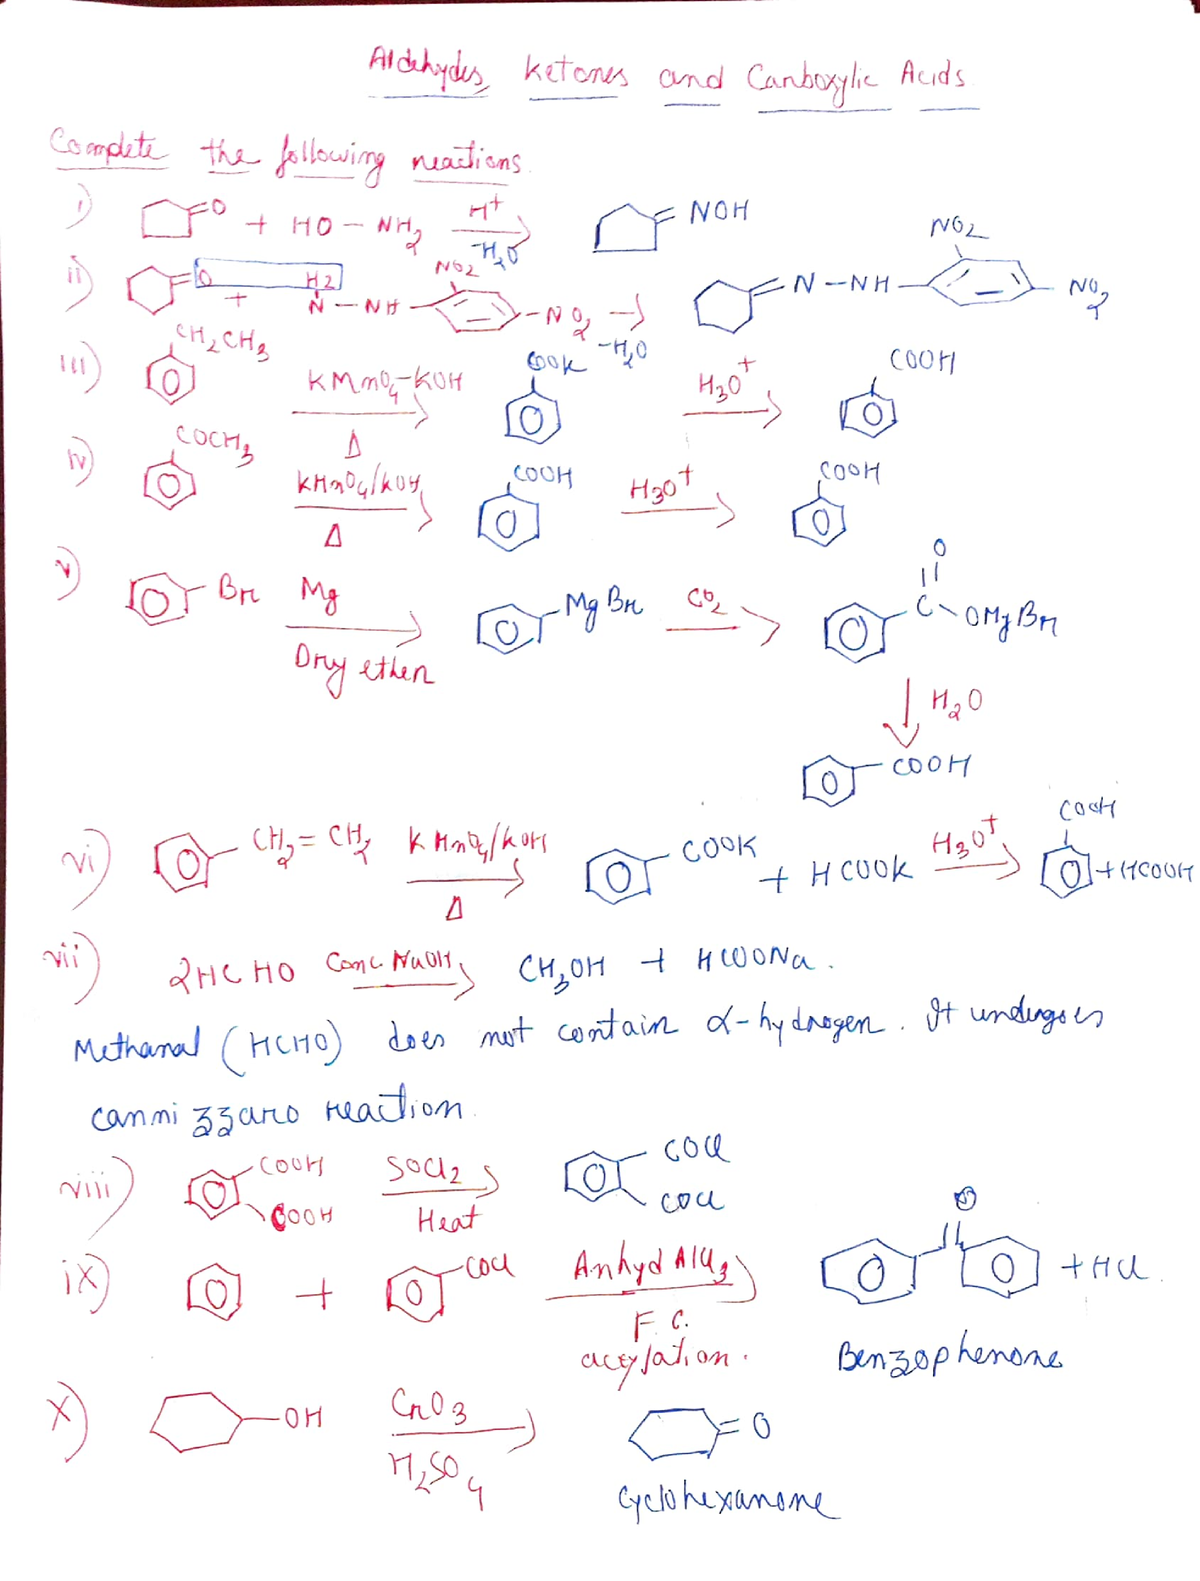 Aldehydes, ketones and Carboxylic Acids
Complete the following reactions.
i) O + HO - NH2 H+ -H2O NOH
ii) O + H2 N - NH NO2 - NO2 -H2O N - NH NO2 NO2
iii) CH2CH3 KMnO4-KOH Δ COOK H3O+ COOH
iv) COCH3 KMnO4/KOH Δ COOH H3O+ COOH
v) Br Mg Dry ether MgBr CO2 O C OMgBr
H2O
COOH
vi) CH2 = CH2 KMnO4/KOH Δ COOK + HCOOK H3O+ COOH + HCOOH
vii) 2HCHO Conc. NaOH CH3OH + HCOONa.
Methanal (HCHO) does not contain α-hydrogen. It undergoes
cannizzaro reaction.
viii) COOH COOH SOCl2 Heat COCl COCl
ix) + COCl Anhyd AlCl3 F.C. acylation. O + HCl.
Benzophenone
x) OH CrO3 H2SO4 = O
Cyclohexanone